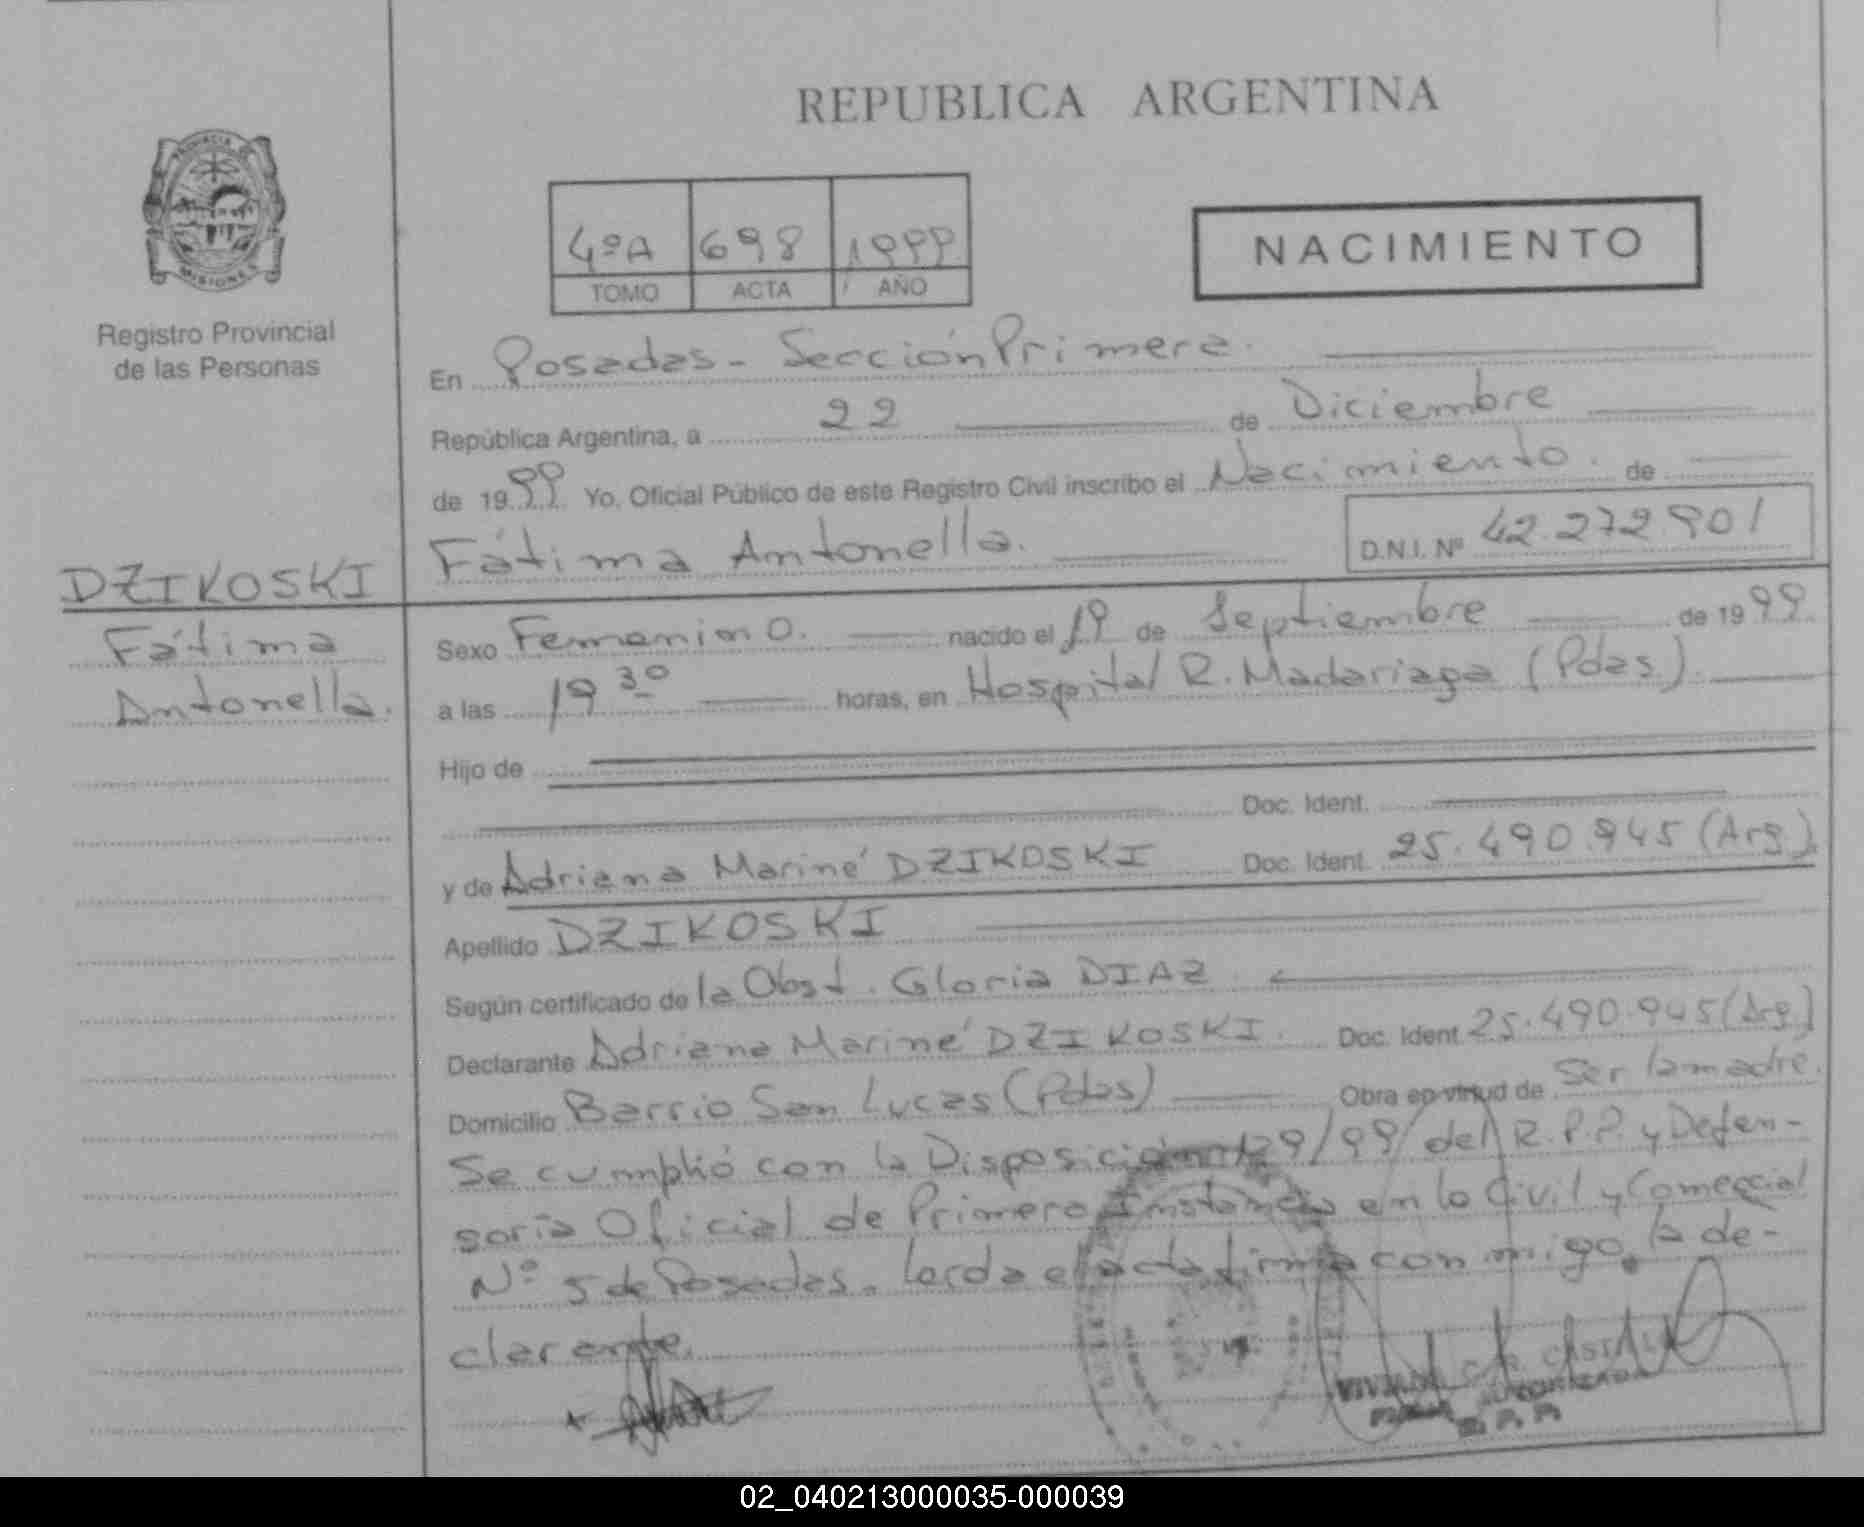 REPUBLICA ARGENTINA
PROVINCIA DE
MISIONES
Registro Provincial
de las Personas
4ºA 698 1999
TOMO ACTA AÑO
NACIMIENTO
En Posadas - Sección Primera.
República Argentina, a 22 de Diciembre
de 1999 Yo, Oficial Público de este Registro Civil inscribo el Nacimiento. de
Fátima Antonella. D.N.I. Nº 42.272.901
DZIKOSKI
Fátima
Antonella.
Sexo Femenino. nacido el 19 de Septiembre de 1999.
a las 19 30 horas, en Hospital R. Madariaga (Pdas).
Hijo de
Doc. Ident.
y de Adriana Mariné DZIKOSKI Doc. Ident. 25.490.945 (Arg).
Apellido DZIKOSKI
Según certificado de la Obst. Gloria DIAZ.
Declarante Adriana Mariné DZIKOSKI. Doc. Ident 25.490.945 (Arg.)
Domicilio Barrio San Lucas (Pdas) Obra en virtud de Ser la madre.
Se cumplió con la Disposición 129/99 del R.P.P. y Defen-
soría Oficial de Primera Instancia en lo Civil y Comercial
Nº 5 de Posadas. Leída el acta firma conmigo, la de-
clarante.
R.P.P.
02_040213000035-000039